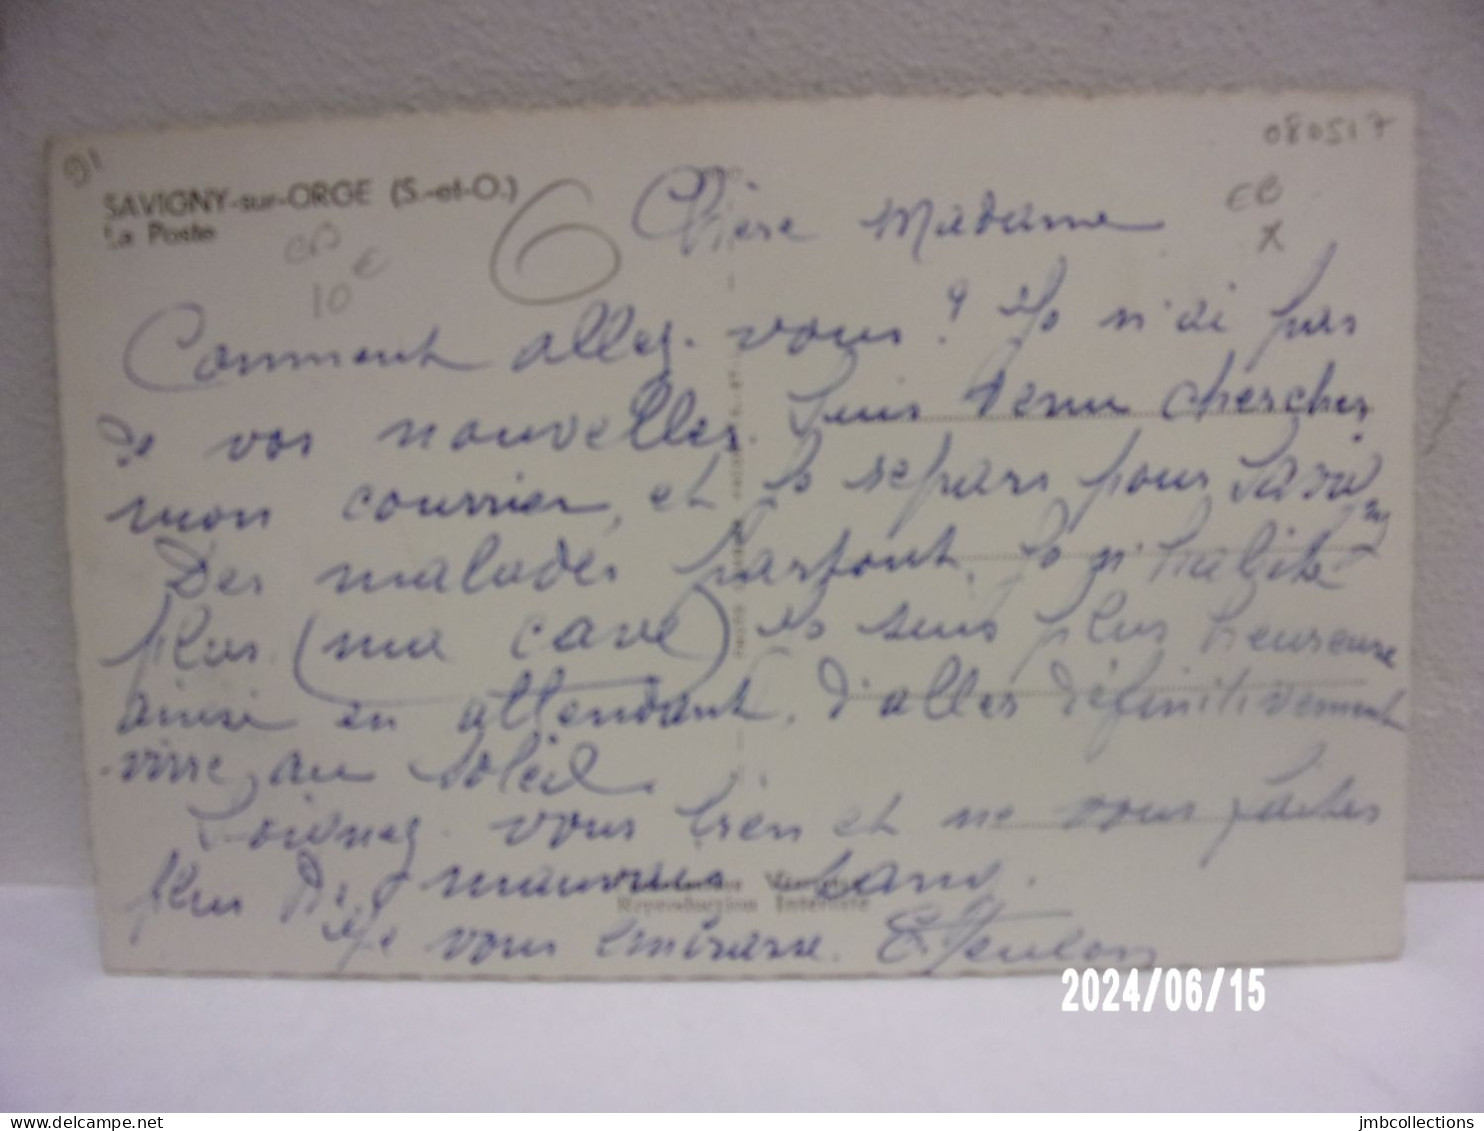 91
080517
SAVIGNY-sur-ORGE (S.-et-O.)
La Poste
CP
10 €
6
CP
X
Chère Madame
Comment allez-vous ? Je n'ai pas
de vos nouvelles. Suis venu chercher
mon courrier, et je repars pour
Des malades partout. Je n'habite
plus (ma cave) je suis plus heureuse
ainsi en attendant, d'aller définitivement
vivre au soleil.
Soignez-vous bien et ne vous faites
plus de mauvais sang.
Reproduction Interdite
Je vous embrasse.
2024/06/15
jmbcollections